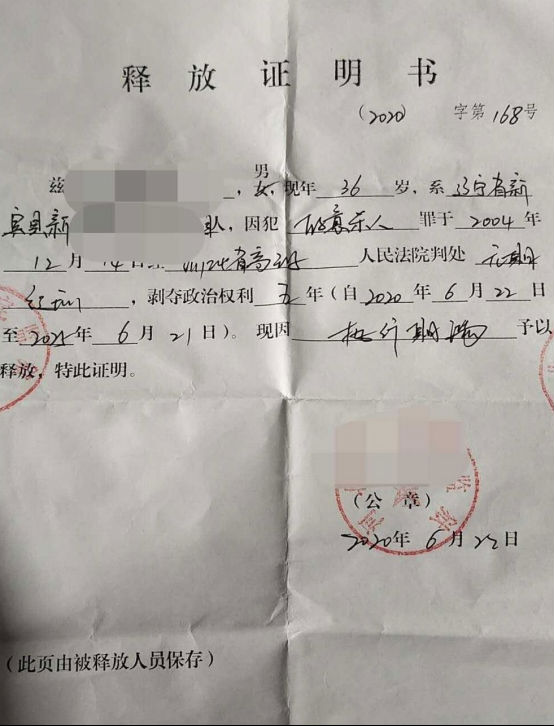 释放证明书
(2020) 字第168号
兹 ，男女，现年 36 岁，系 辽宁省新
宾县新 人，因犯 故意杀人 罪于 2004年
12月 14日 省高级 人民法院判处 无期
徒刑 ，剥夺政治权利 五 年（自 2020 年 6 月 22 日
至 2025年 6 月 21日）。现因 执行期满 予以
释放，特此证明。
（公 章）
2020年 6 月 22日
（此页由被释放人员保存）